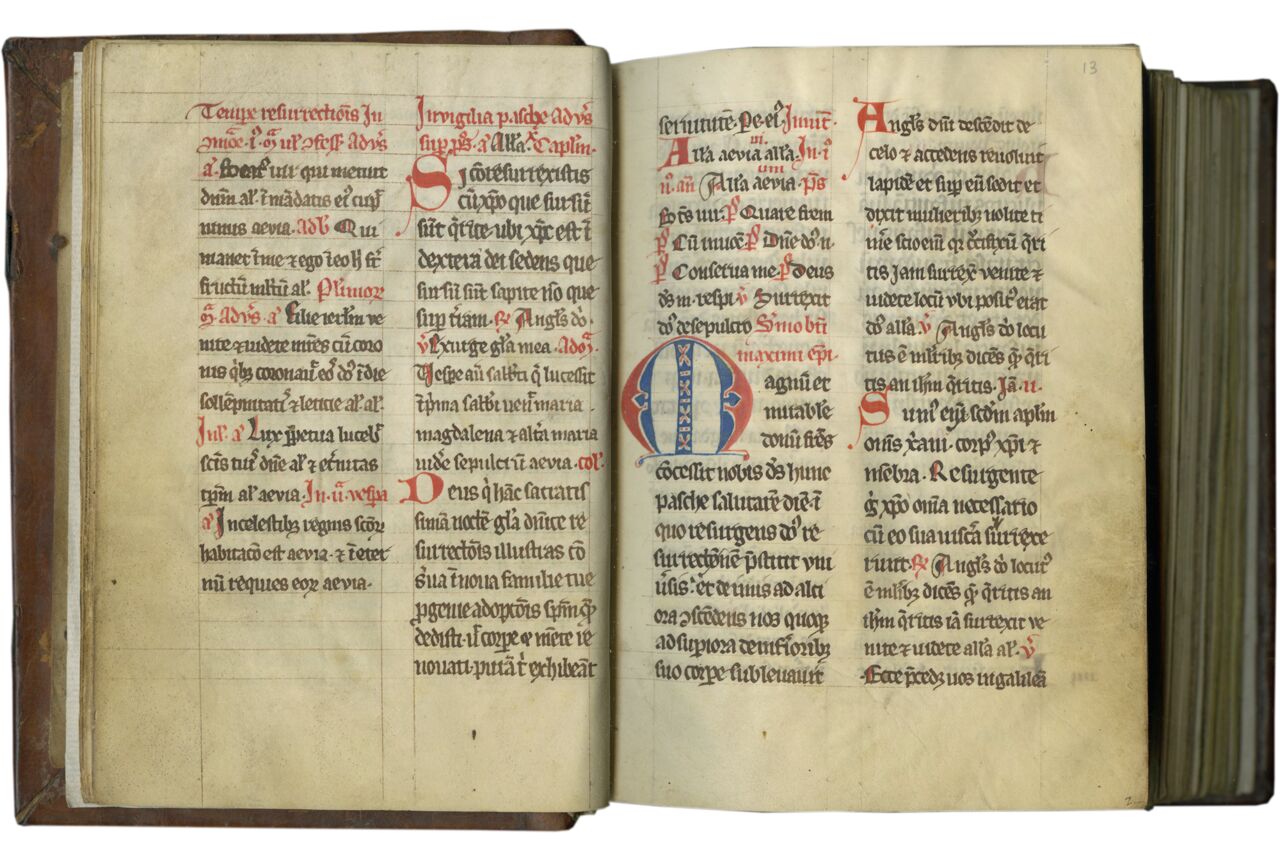 Tempe resurrectiōis In
a. Beatꝰ vir qui metuit
dn̄m al. ī mādatis eiꝰ cupꝰ
nimis aevia. Ad b̄ Qui
manet ī me ⁊ ego ī eo h̄ fe̅rt
fructū mltū al. Pl. mior
Advꝰ. a. Filie ierl̄m ve
nite ⁊ videte m̄res cū coro
nis qͥbꝫ coronavͭ eoˢ doˢ ī die
sollēpnitatꝭ ⁊ leticie al. al.
a. Lux ꝑpetua luceb̄
sc̄is tuiˢ dn̄e al. ⁊ et̄nitas
tp̄m al. aevia. In ij. vespa
a. In celestibꝫ regnis sc̄oꝝ
habitac̄o est aevia. ⁊ ī eter
nū requies eoꝝ aevia.
In vigilia pasche ad vꝰ
sup ps̄. a. All̄a. Capl̄m.
Si c̄oresurrexistis
cū xp̄o que sursū
sūt q̄rite. ubi xp̄c est ī
dextera dei sedens que
sursū sūt sapite nō que
sup t̄ram. ℞ Angl̄s dō.
℣ Exurge gl̄a mea. Ad
Vespe aū sabb̄i q̄ lucescit
ī p̄ma sabb̄i venͭ maria
magdalena ⁊ alt̄a maria
vidē sepulcrū aevia. col̄.
Deus qͥ hāc sacratis
simā noctē gl̄a dn̄ice re
surrect̄ois illustras cō
s̄va ī nova familie tue
ꝓgenie adopt̄ois sp̄m quē
dedisti. ut̄ corpe ⁊ mēte re
novati. purā tͥ exhibeāt
servitutē. Pe. eū. Invit̄.
All̄a aevia all̄a. In. i
n. añ All̄a aevia. ps̄
Bt̄s vir. ps̄ Quare frem
ps̄ Cū invoc̄. ps̄ Dn̄e dō n.
ps̄ Conserva me. ps̄ Deus
dˢ m. respi. ℣ Surrexit
dō de sepulcro Sm̄o bt̄i
maximi ep̄i.
Magnū et
mirabile
donū fr̄es
c̄ocessit nobis dˢ hunc
pasche salutarē diē. ī
quo resurgens doˢ re
surrect̄onē p̄stitit vni
v̄sis. et de imis ad alti
ora ↄscēdens nos quoqꝫ
ad supiora de inf̄ioribꝫ
suo corpe sublevavit
13
Angl̄s dn̄i descēdit de
celo ⁊ accedens revolvit
lapidē et sup eū sedit et
dixit mulieribꝫ nolite ti
m̄e scio eni qꝛ c̄cifixū q̄ri
tis jam surrexͭ venite ⁊
videte locū ubi positꝰ erat
dō all̄a ℣ Angl̄s dō locu
tus ē ml̄ribꝫ dicēs quē q̄ri
tis an ih̄m q̄ritis. Jā. ℣.
Sumꝰ enī scd̄m apl̄m
om̄s x̄ani. corpꝰ xp̄i ⁊
mēbra. Resurgente
ḡ xp̄o om̄a necessario
cū eo sua viscā surrexe
runt. ℞ Angl̄s dō locutꝰ
ē ml̄ibꝫ dicēs quē q̄ritis an
ih̄m q̄ritis iā surrexit ve
nite ⁊ videte all̄a al. ℣
Ecce p̄cedꝫ vos in galileā